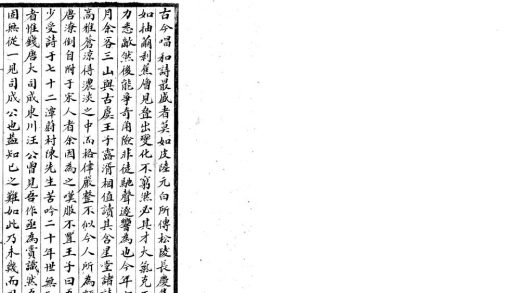 古今唱和詩最盛者莫如皮陸元白所傳松陵長慶
如抽繭剥蕉層見疊出變化不窮然必其才大氣克
力悉敵然後能爭奇角險非徒馳聲逐響為也今年
月余客三山與古虞王子露湑相值讀其含星堂諸
高雄蒼涼得濃淡之中而格律嚴整不似今人所為
唐潦倒自附于宋人者余因為之嘆服不置王子曰
少受詩于七十二潭蔚村陳先生苦吟二十年世無
者惟錢唐大司成東川汪公曾見吾作亟為賞識然
固無從一見司成公也益知知己之難如此乃未幾而